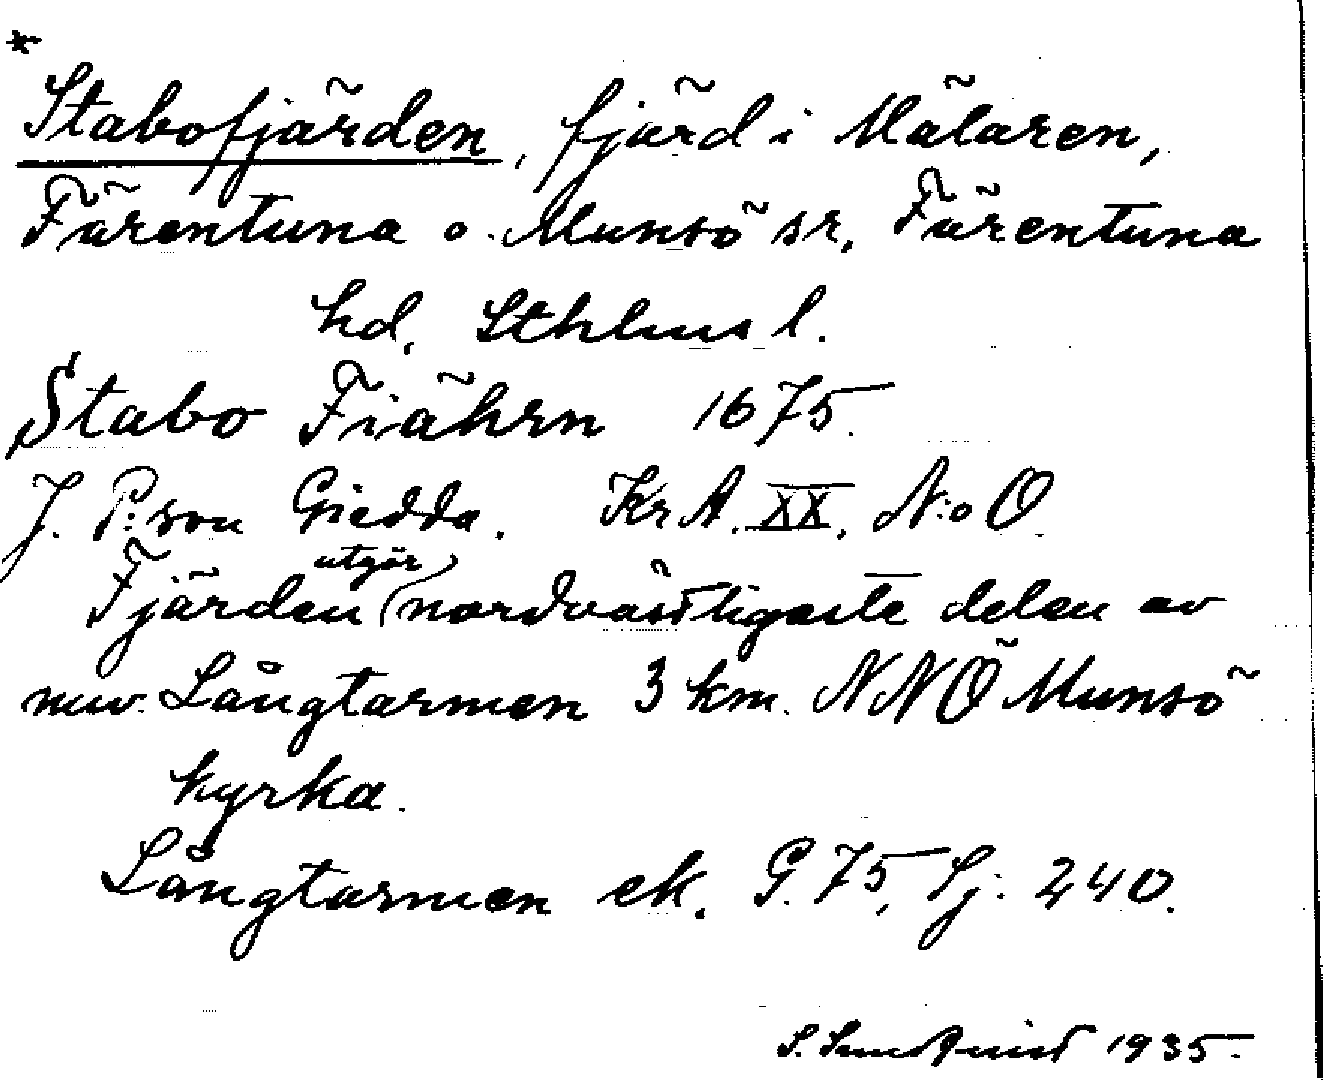 *
Stabofjärden, fjärd i Mälaren,
Färentuna o. Munsö sr, Färentuna
hd, Sthlms l.
Stabo Fiährn 1675.
J. P:son Giedda. KrA. XX, N:o O.
Fjärden utgör nordvästligaste delen av
nuv. Långtarmen 3 km. NNÖ Munsö
kyrka.
Långtarmen ek. G. 75, Sj: 240.
S. Sundquist 1935.